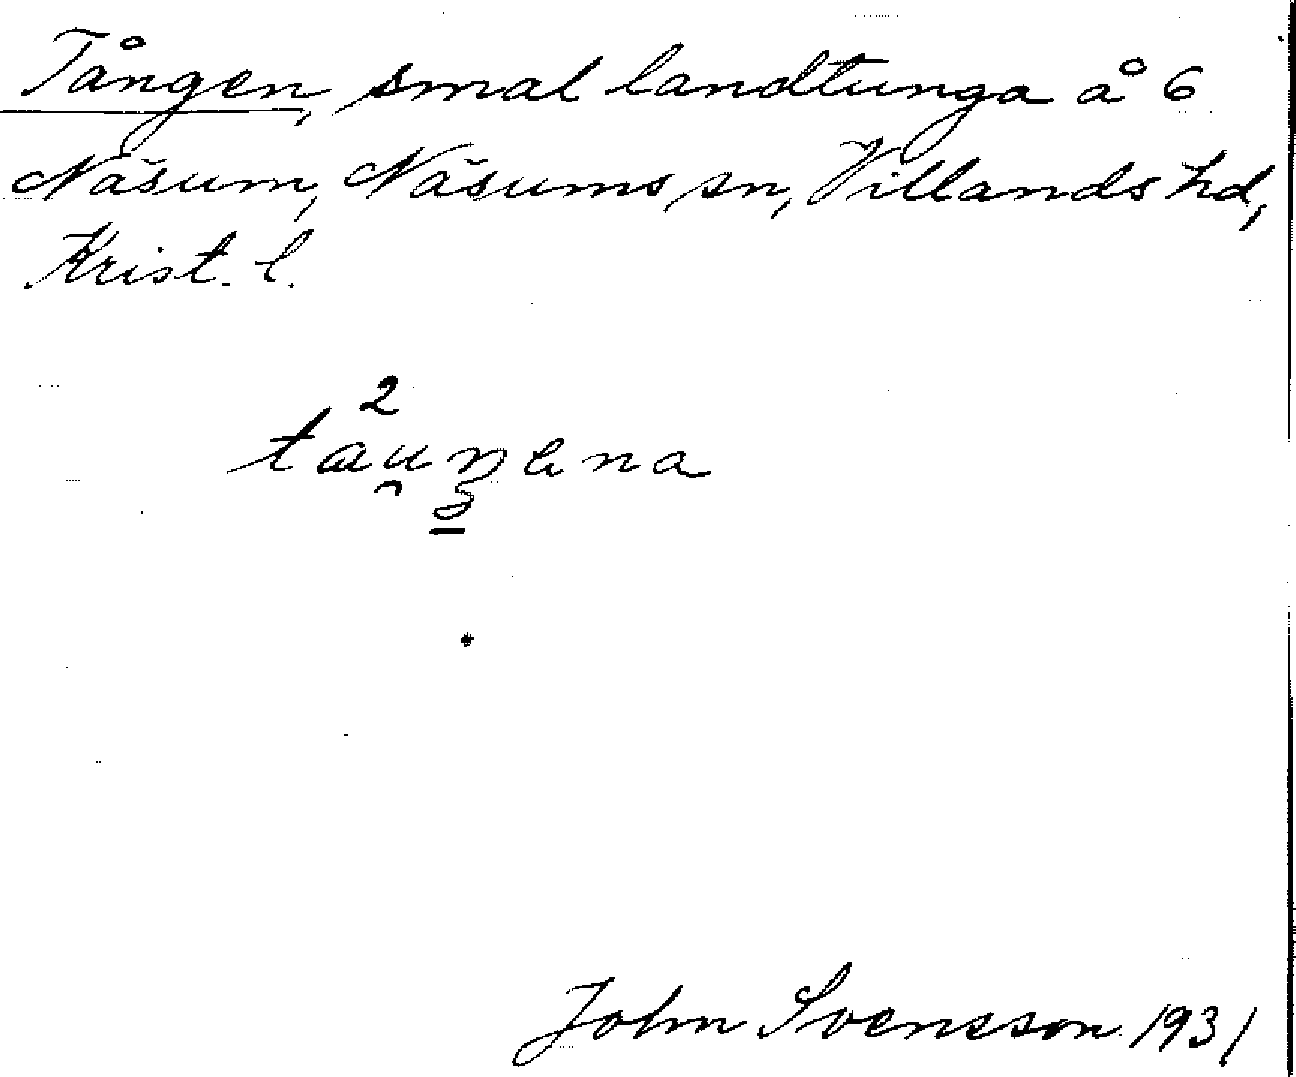 Tången, smal landtunga å 6
Näsum, Näsums sn, Villands hd,
Krist. l.
2
tau̯ŋena
John Svensson 1931